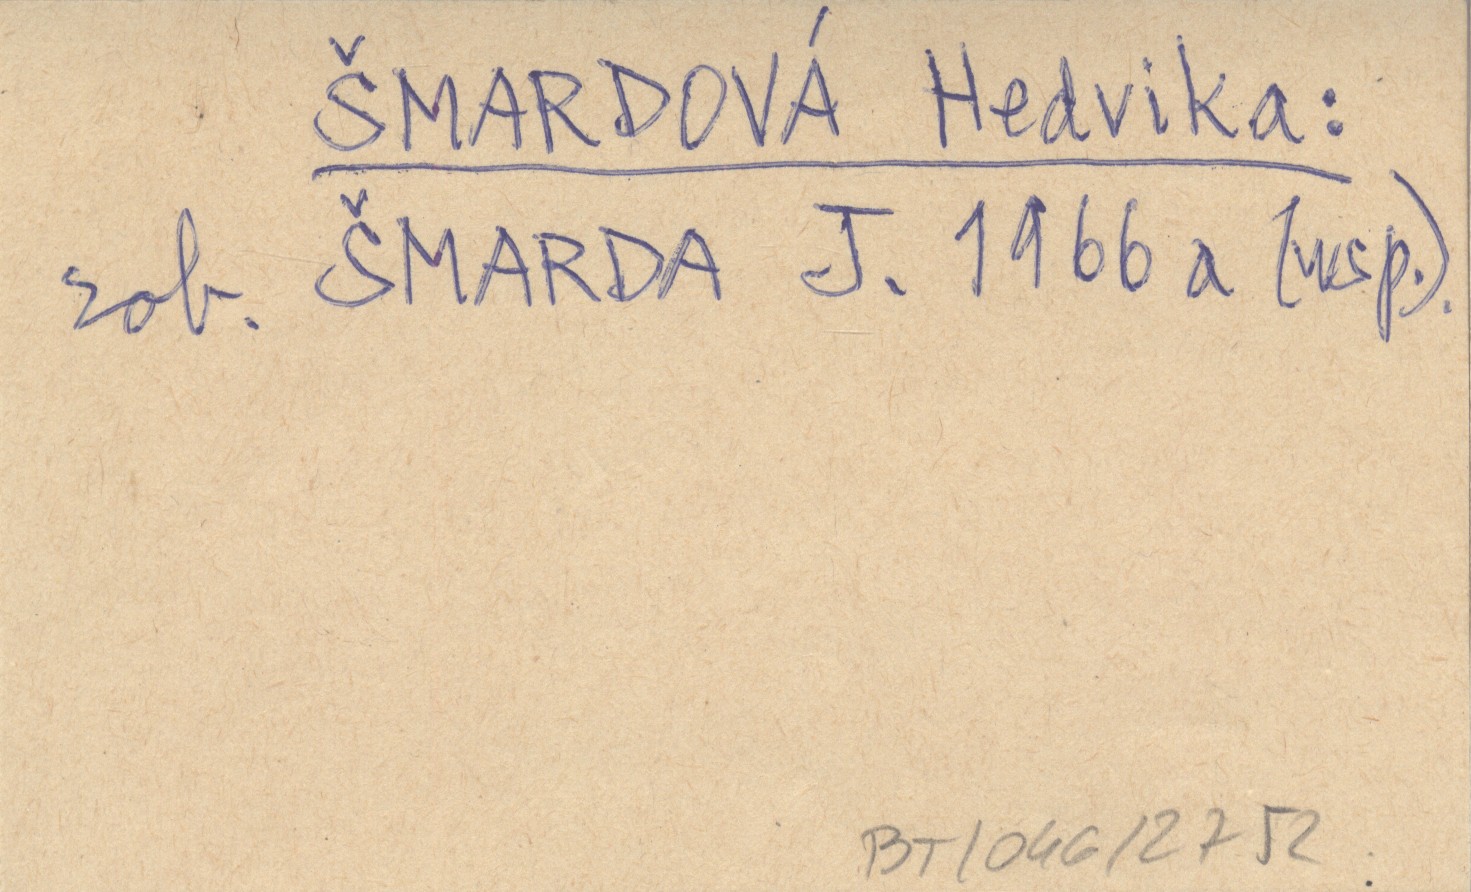 ŠMARDOVÁ Hedvika:
zob. ŠMARDA J. 1966 a (usp.).
BT/046/2752